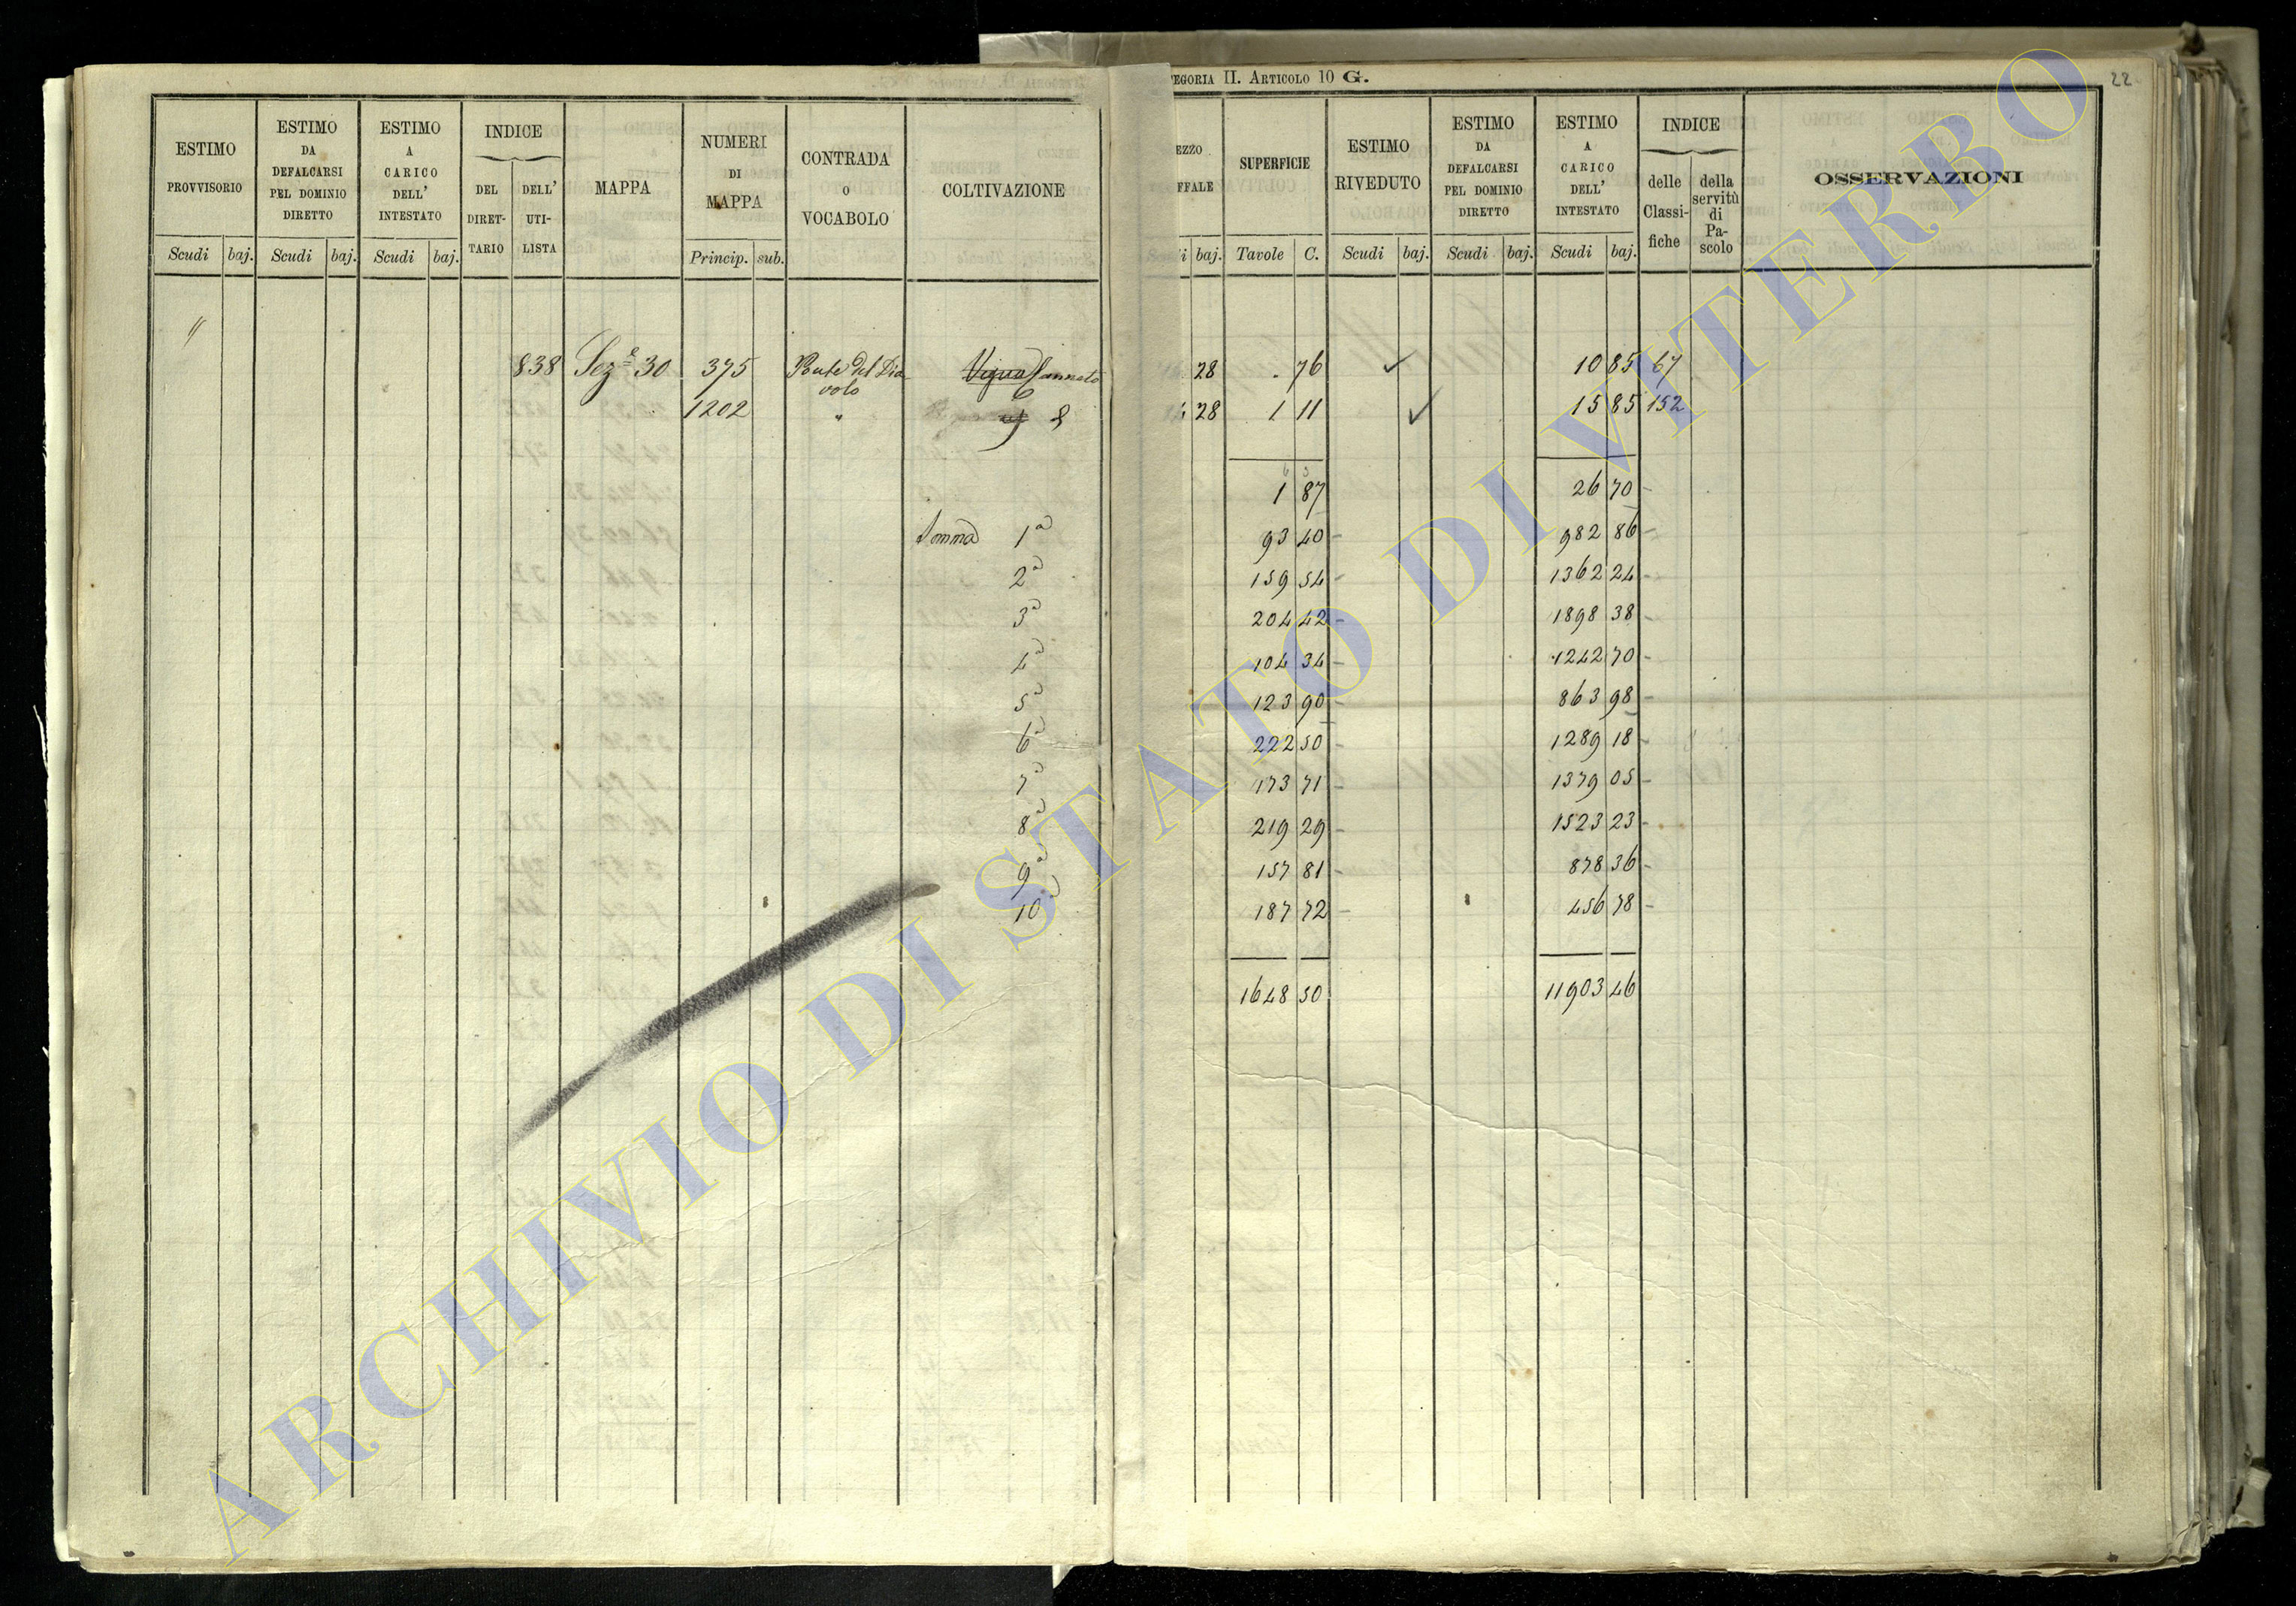 TEGORIA II. ARTICOLO 10 G.
22
ESTIMO PROVVISORIO
ESTIMO DA DEFALCARSI PEL DOMINIO DIRETTO
ESTIMO A CARICO DELL' INTESTATO
INDICE
DEL DIRET-TARIO
DELL' UTI-LISTA
MAPPA
NUMERI DI MAPPA
CONTRADA O VOCABOLO
COLTIVAZIONE
EZZO FFALE
SUPERFICIE
ESTIMO RIVEDUTO
ESTIMO DA DEFALCARSI PEL DOMINIO DIRETTO
ESTIMO A CARICO DELL' INTESTATO
INDICE
delle Classi-fiche
della servitù di Pa-scolo
OSSERVAZIONI
Scudi baj. Scudi baj. Scudi baj. Princip. sub. i baj. Tavole C. Scudi baj. Scudi baj. Scudi baj.
"
838 Sez.e 30 375 Ponte del Dia Vigna Canneto 28 . 76 ✓ 10 85 67
volo
1202 " 28 1 11 ✓ 15 85 152
1 87 26 70
Somma 1a 93 40 982 86
2a 159 54 1362 24
3a 204 42 1898 38
4a 104 34 1242 70
5a 123 90 863 98
6a 222 50 1289 18
7a 173 71 1379 05
8a 219 29 1523 23
9a 157 81 878 36
10a 187 72 456 78
1648 50 11903 46
ARCHIVIO DI STATO DI VITERBO